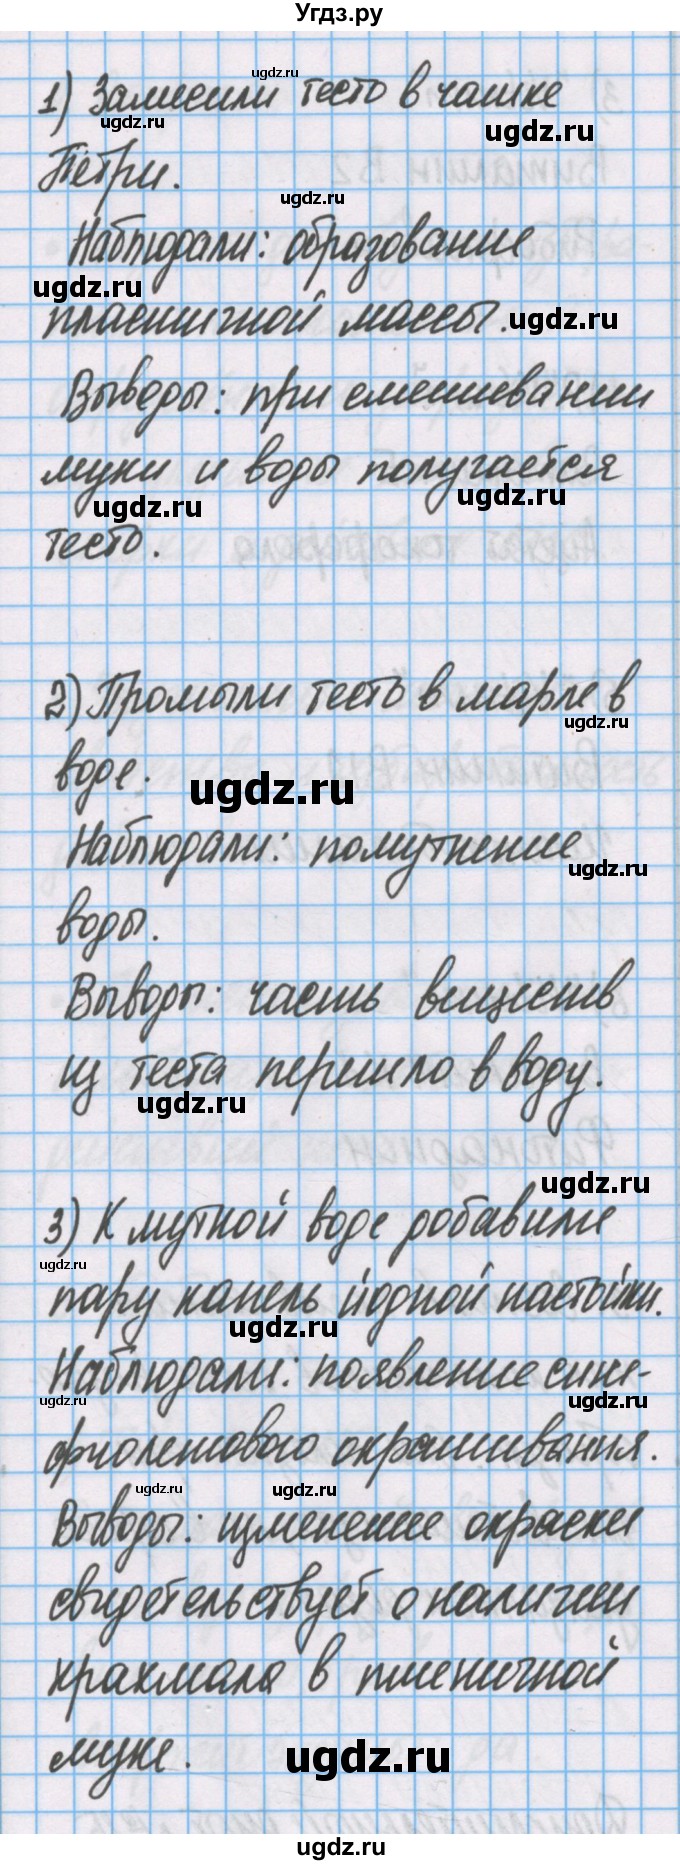 Угдз.ру
1) Замесили тесто в чашке
Петри.
Наблюдали: образование
пластичной массы.
Выводы: при смешивании
муки и воды получается
тесто.
2) Промыли тесто в марле в
воде.
Наблюдали: помутнение
воды.
Выводы: часть веществ
из теста перешло в воду.
3) К мутной воде добавили
пару капель йодной настойки.
Наблюдали: появление сине-
фиолетового окрашивания.
Выводы: изменение окраски
свидетельствует о наличии
крахмала в пшеничной
муке.
ugdz.ru